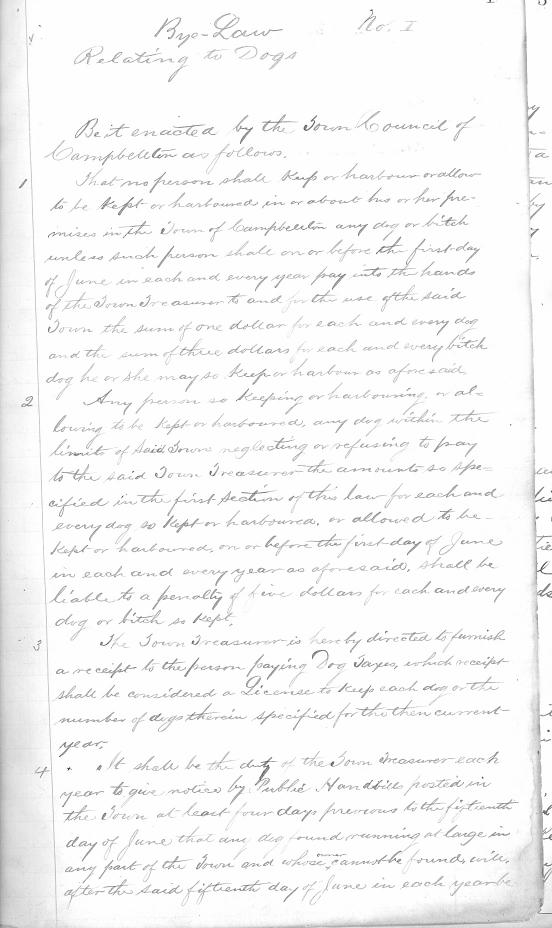 Bye-Law No. I
Relating to Dogs
Be it enacted by the Town Council of
Campbellton as follows.
1 That no person shall Keep or harbour or allow
to be Kept or harboured in or about his or her pre-
mises in the Town of Campbellton any dog or bitch
unless such person shall on or before the first day
of June in each and every year pay into the hands
of the Town Treasurer to and for the use of the said
Town the sum of one dollar for each and every dog
and the sum of three dollars for each and every bitch
dog he or she may so Keep or harbour as aforesaid
2 Any person so Keeping or harbouring, or al-
lowing to be Kept or harboured, any dog within the
limits of Said Town neglecting or refusing to pay
to the said Town Treasurer the amounts so spe-
cified in the first section of this law for each and
every dog so Kept or harboured, or allowed to be
Kept or harboured, on or before the first day of June
in each and every year as aforesaid, shall be
liable to a penalty of five dollars for each and every
dog or bitch so Kept.
3 The Town Treasurer is hereby directed to furnish
a receipt to the person paying Dog Taxes, which receipt
shall be considered a License to Keep each dog or the
number of dogs therein specified for the then current
year.
4 It shall be the duty of the Town Treasurer each
year to give notice by Public Handbills posted in
the Town at least four days previous to the fifteenth
day of June that any dog found running at large in
any part of the Town and whose owner cannot be found, will,
after the said fifteenth day of June in each year be